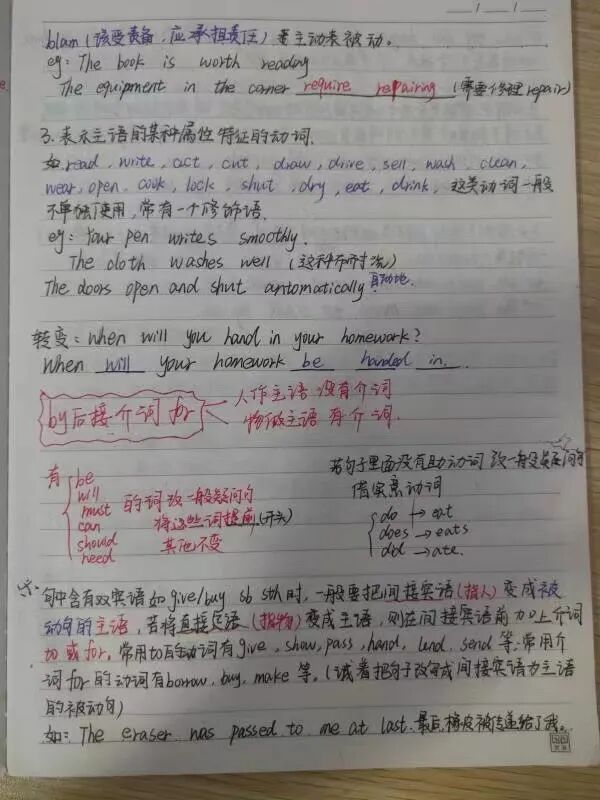 blam (该受责备，应承担责任) 要主动表被动。
eg: The book is worth reading
The equipment in the corner require repairing (需要修理 repair)
3. 表示主语的某种属性特征的动词.
如 read, write, act, cut, draw, drive, sell, wash, clean,
wear, open, cook, lock, shut, dry, eat, drink, 这类动词一般
不单独使用，常有一个修饰语.
eg: Your pen writes smoothly.
The cloth washes well (这种布耐洗)
The doors open and shut antomatically 自动地.
转变: When will you hand in your homework?
When will your homework be handed in.
by后接介词 for
人作主语 没有介词
物做主语 有介词.
有 be
will
must
can
should
need
的词改一般疑问句
将这些词提前(开头)
其他不变
若句子里面没有助动词 改一般疑问句
借实意动词
do → eat
does → eats
did → ate.
句中含有双宾语如 give/buy sb sth时，一般要把间接宾语(指人)变成被
动句的主语，若将直接宾语(指物)变成主语，则在间接宾语前加上介词
to 或 for. 常用to的动词有 give, show, pass, hand, lend, send 等, 常用介
词 for 的动词有 borrow, buy, make 等。(试着把句子改写成间接宾语为主语
的被动句)
如: The eraser was passed to me at last. 最后, 橡皮被传递给了我。